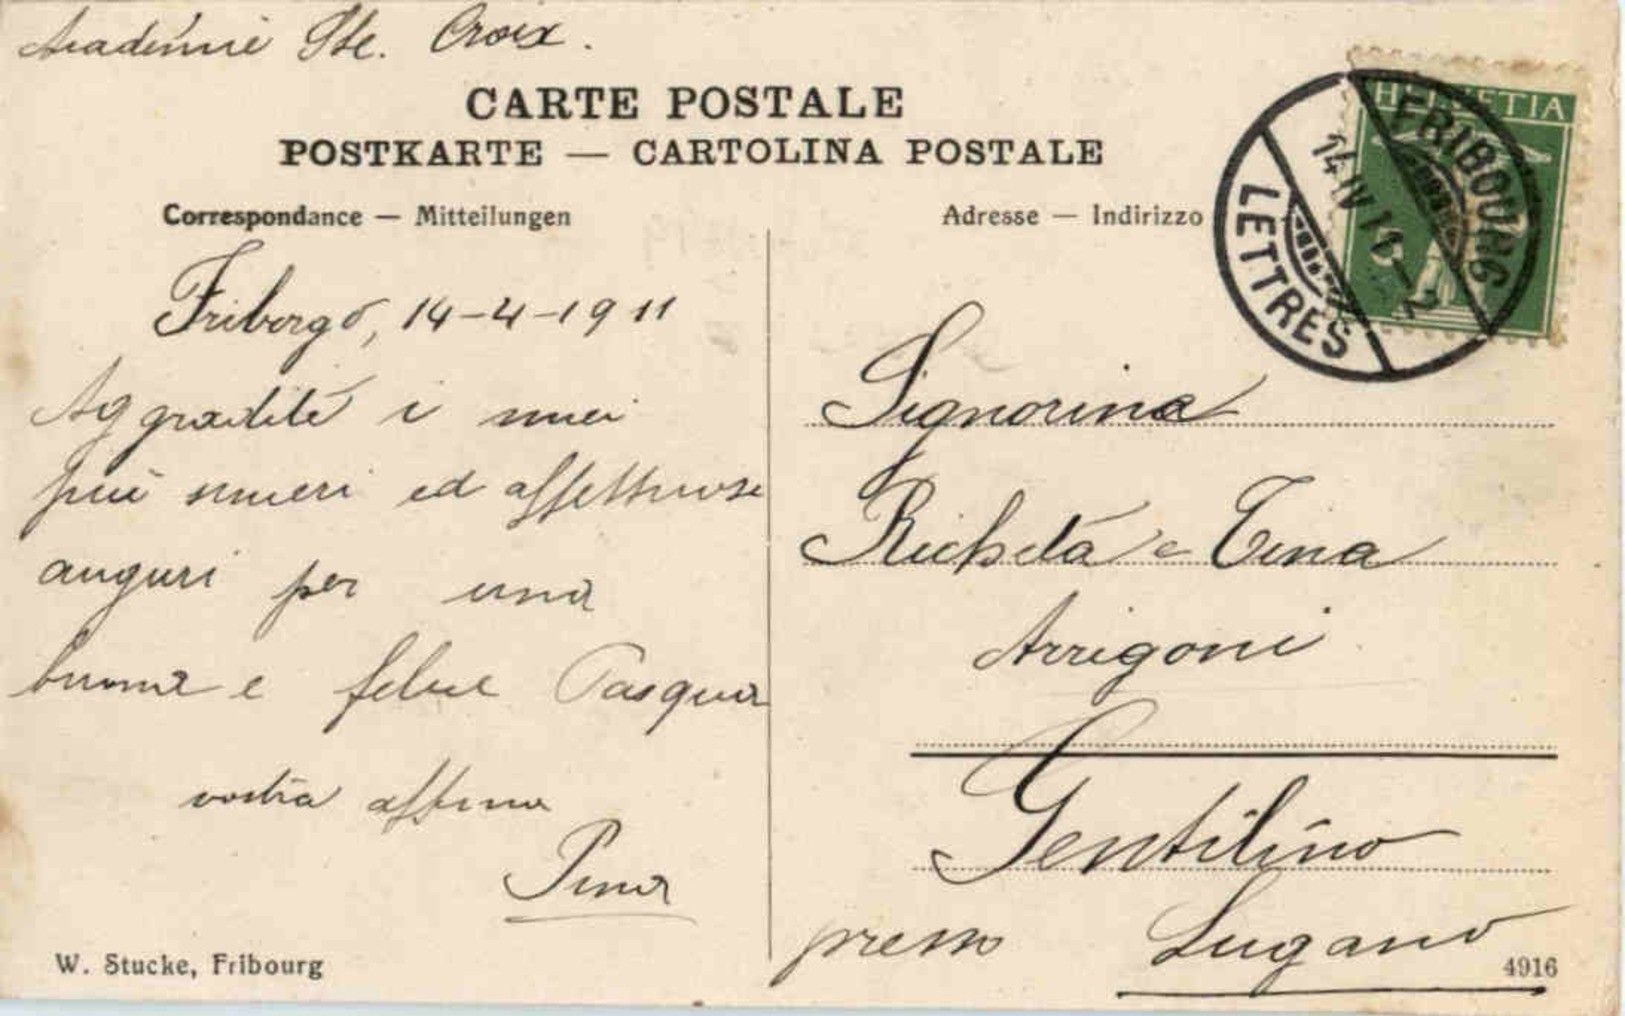 Académie Ste. Croix.
CARTE POSTALE
POSTKARTE — CARTOLINA POSTALE
Correspondance — Mitteilungen
Adresse — Indirizzo
HELVETIA
FRIBOURG
14 IV 11 — 2
LETTRES
Friborgo, 14-4-1911
Aggradite i miei
più sinceri ed affettuosi
auguri per una
buona e felice Pasqua
vostra affma
Pina
Signorina
Richetta e Tina
Arrigoni
Gentilino
presso Lugano
W. Stucke, Fribourg
4916